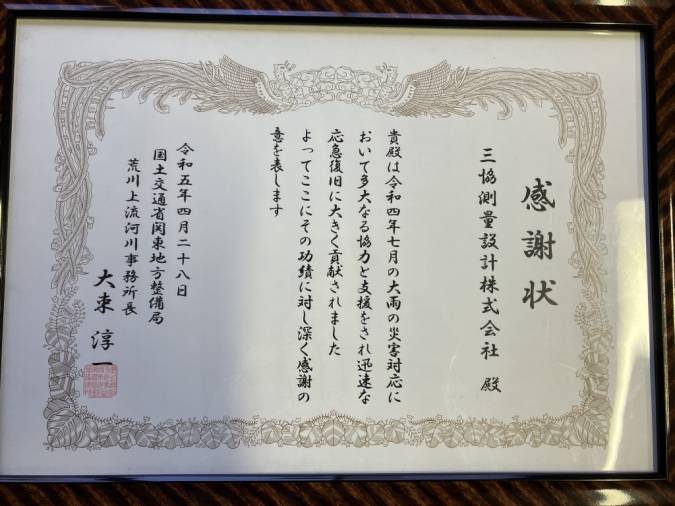 感謝状
三協測量設計株式会社 殿
貴殿は令和四年七月の大雨の災害対応に
おいて多大なる協力と支援をされ迅速な
応急復旧に大きく貢献されました
よってここにその功績に対し深く感謝の
意を表します
令和五年四月二十八日
国土交通省関東地方整備局
荒川上流河川事務所長
大束 淳一